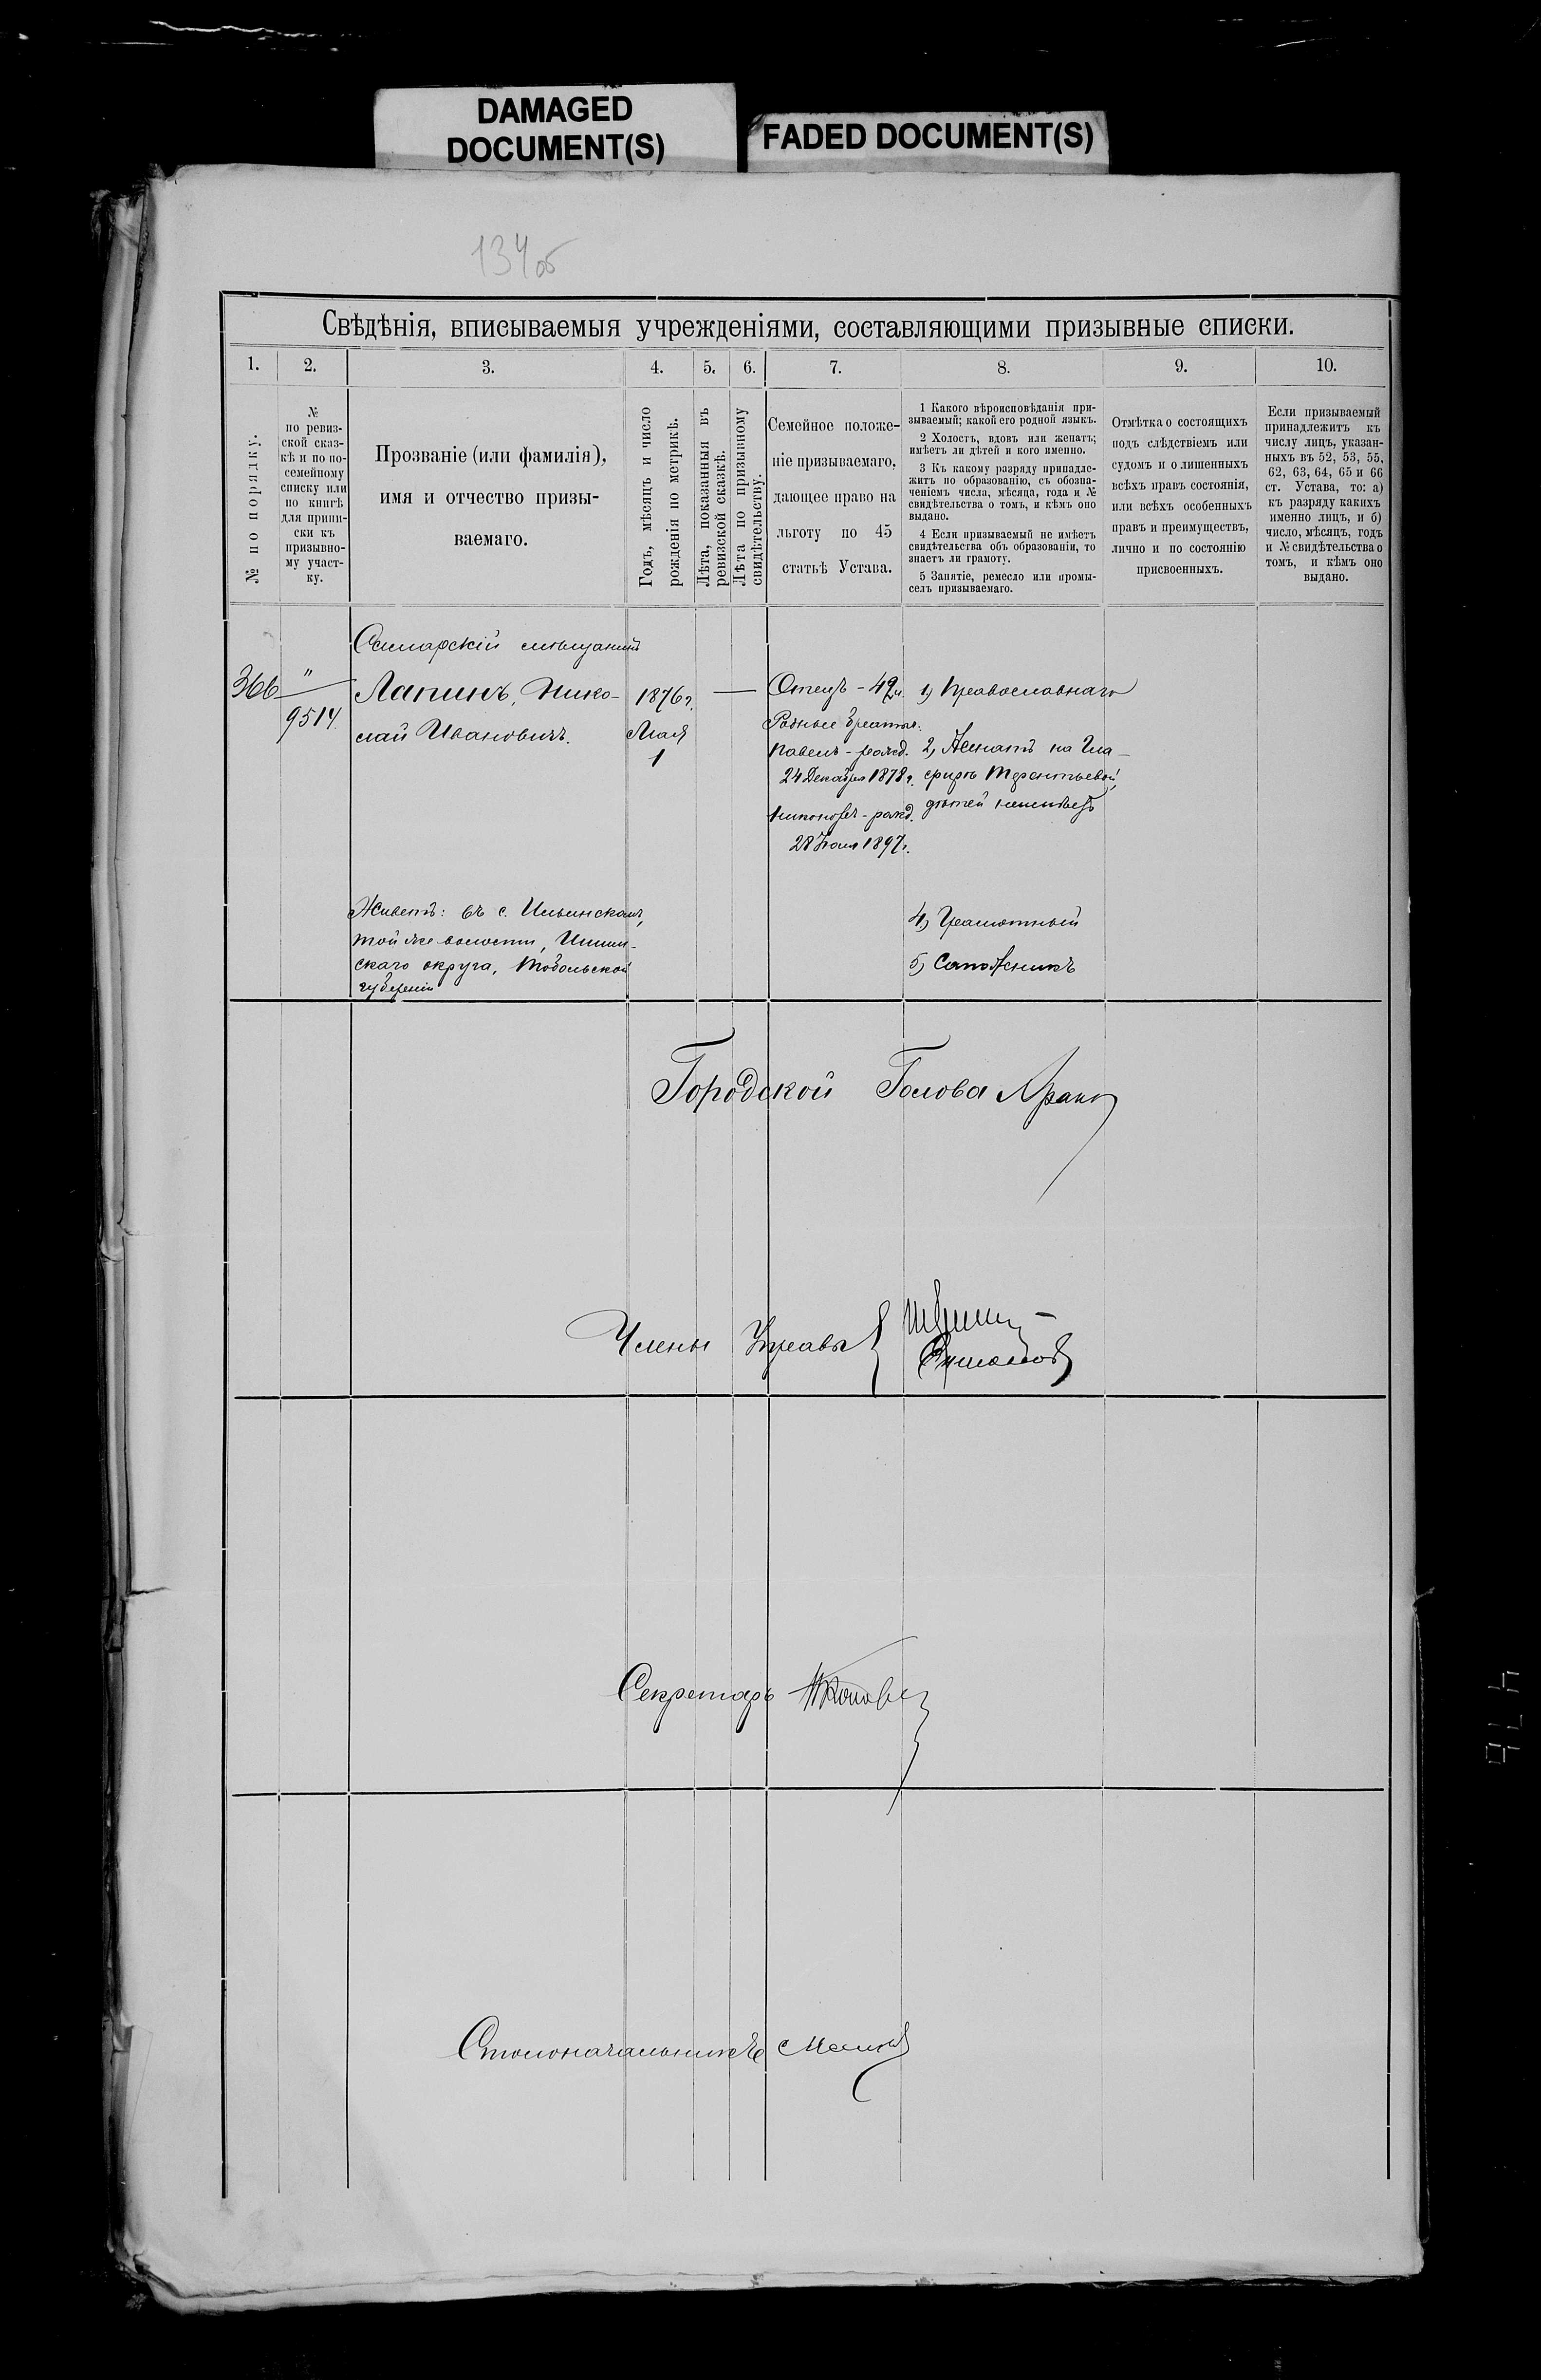 DAMAGED
DOCUMENT(S)
FADED DOCUMENT(S)
134об
Свѣдѣнія, вписываемыя учрежденіями, составляющими призывные списки.
1.
2.
3.
4.
5.
6.
7.
8.
9.
10.
№ по порядку.
№
по ревиз-
ской сказ-
кѣ и по по-
семейному
списку или
по книгѣ
для припи-
ски къ
призывно-
му участ-
ку.
Прозваніе (или фамилія),
имя и отчество призы-
ваемаго.
Годъ, мѣсяцъ и число
рожденія по метрикѣ.
Лѣта, показанныя въ
ревизской сказкѣ.
Лѣта по призывному
свидѣтельству.
Семейное положе-
ніе призываемаго,
дающее право на
льготу по 45
статьѣ Устава.
1 Какого вѣроисповѣданія при-
зываемый; какой его родной языкъ.
2 Холостъ, вдовъ или женатъ;
имѣетъ ли дѣтей и кого именно.
3 Къ какому разряду принадле-
житъ по образованію, съ обозна-
ченіемъ числа, мѣсяца, года и №
свидѣтельства о томъ, и кѣмъ оно
выдано.
4 Если призываемый не имѣетъ
свидѣтельства объ образованіи, то
знаетъ ли грамоту.
5 Занятіе, ремесло или промы-
селъ призываемаго.
Отмѣтка о состоящихъ
подъ слѣдствіемъ или
судомъ и о лишенныхъ
всѣхъ правъ состоянія,
или всѣхъ особенныхъ
правъ и преимуществъ,
лично и по состоянію
присвоенныхъ.
Если призываемый
принадлежитъ къ
числу лицъ, указан-
ныхъ въ 52, 53, 55,
62, 63, 64, 65 и 66
ст. Устава, то: а)
къ разряду какихъ
именно лицъ, и б)
число, мѣсяцъ, годъ
и № свидѣтельства о
томъ, и кѣмъ оно
выдано.
366
"
9514.
Самарскій мѣщанинъ
Лапинъ, Нико-
лай Ивановичъ.
1876 г.
Мая
1
—
Отецъ - 49 л.
Родные братья:
Павелъ - рожд.
24 Декабря 1878 г.
Никоноръ - рожд.
28 Іюля 1897 г.
1) Православнаго
2) Женатъ на Гла-
фирѣ Терентьевой,
дѣтей неимѣетъ
Живетъ: въ с. Ильинскомъ,
той же волости, Ишим-
скаго округа, Тобольской
губерніи
4) Грамотный
5) Сапожникъ
Городской Голова
Члены Управы
Секретарь
Столоначальникъ
476